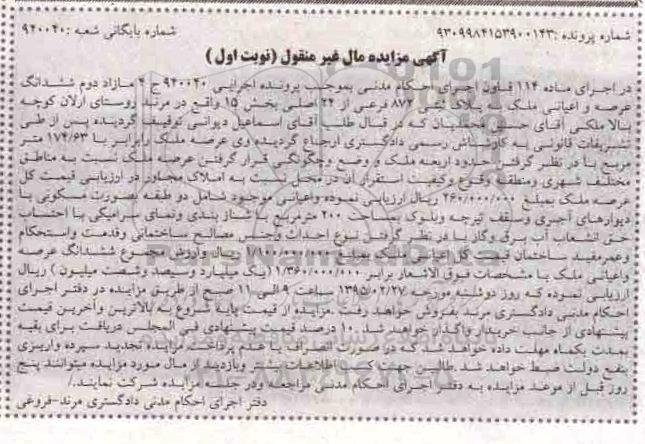 شماره پرونده :۹۳۰۹۹۸۴۱۵۳۹۰۰۱۴۳ شماره بایگانی شعبه :۹۴۰۰۴۰
آگهی مزایده مال غیر منقول (نوبت اول )
در اجرای ماده ۱۱۴ قانون اجرای احکام مدنی بموجب پرونده اجرایی ۹۴۰۰۴۰ ج ۴ مازاد دوم ششدانگ
عرصه و اعیانی ملک به پلاک ثبتی ۸۷۲ فرعی از ۲۴ اصلی بخش ۱۵ واقع در مرند روستای ارلان کوچه
بالا ملکی آقای که در قبال طلب آقای اسماعیل دیوانی توقیف گردیده پس از طی
تشریفات قانونی به کارشناس رسمی دادگستری ارجاع گردیده وی عرصه ملک رابرابر با ۱۷۴/۶۳ متر
مربع با در نظر گرفتن حدود اربعه ملک و وضع وچگونگی قرار گرفتن عرصه ملک نسبت به مناطق
مختلف شهری ومنطقه وقوع وکیفیت استقرار آن در محل نسبت به املاک مجاور در ارزیابی قیمت کل
عرصه ملک بمبلغ ۲۶۰/۰۰۰/۰۰۰ ریال ارزیابی نموده واعیانی موجود شامل دو طبقه بصورت مسکونی با
دیوارهای آجری وسقف تیرچه وبلوک بمساحت ۲۰۰ مترمربع با شناژ بندی ونمای سرامیکی با احتساب
حق انشعاب آب برق وگاز با در نظر گرفتن نوع احداث وجنس مصالح ساختمانی وقدمت واستحکام
وعمرمفید ساختمان قیمت کل اعیانی ملک بمبلغ ۱/۱۰۰/۰۰۰/۰۰۰ ریال وارزش مجموع ششدانگ عرصه
واعیانی ملک با مشخصات فوق الاشعار برابر ۱/۳۶۰/۰۰۰/۰۰۰ (یک میلیارد وسیصد وشصت میلیون ) ریال
ارزیابی نموده که روز دوشنبه مورخه ۱۳۹۵/۰۲/۲۷ ساعت ۹ الی ۱۱ صبح از طریق مزایده در دفتر اجرای
احکام مدنی دادگستری مرند بفروش خواهد رفت .مزایده از قیمت پایه شروع به بالاترین وآخرین قیمت
پیشنهادی از جانب خریدار واگذار خواهد شد .۱۰ درصد قیمت پیشنهادی فی المجلس دریافت برای بقیه
بمدت یکماه مهلت داده خواهد شد که در صورت انصراف یا عدم پرداخت مزایده تجدید سپرده واریزی
بنفع دولت ضبط خواهد شد .طالبین جهت کسب اطلاعات بیشتر وبازدید از مال مورد مزایده میتوانند پنج
روز قبل از موعد مزایده به دفتر اجرای احکام مدنی مراجعه ودر جلسه مزایده شرکت نمایند./
دفتر اجرای احکام مدنی دادگستری مرند-فروغی